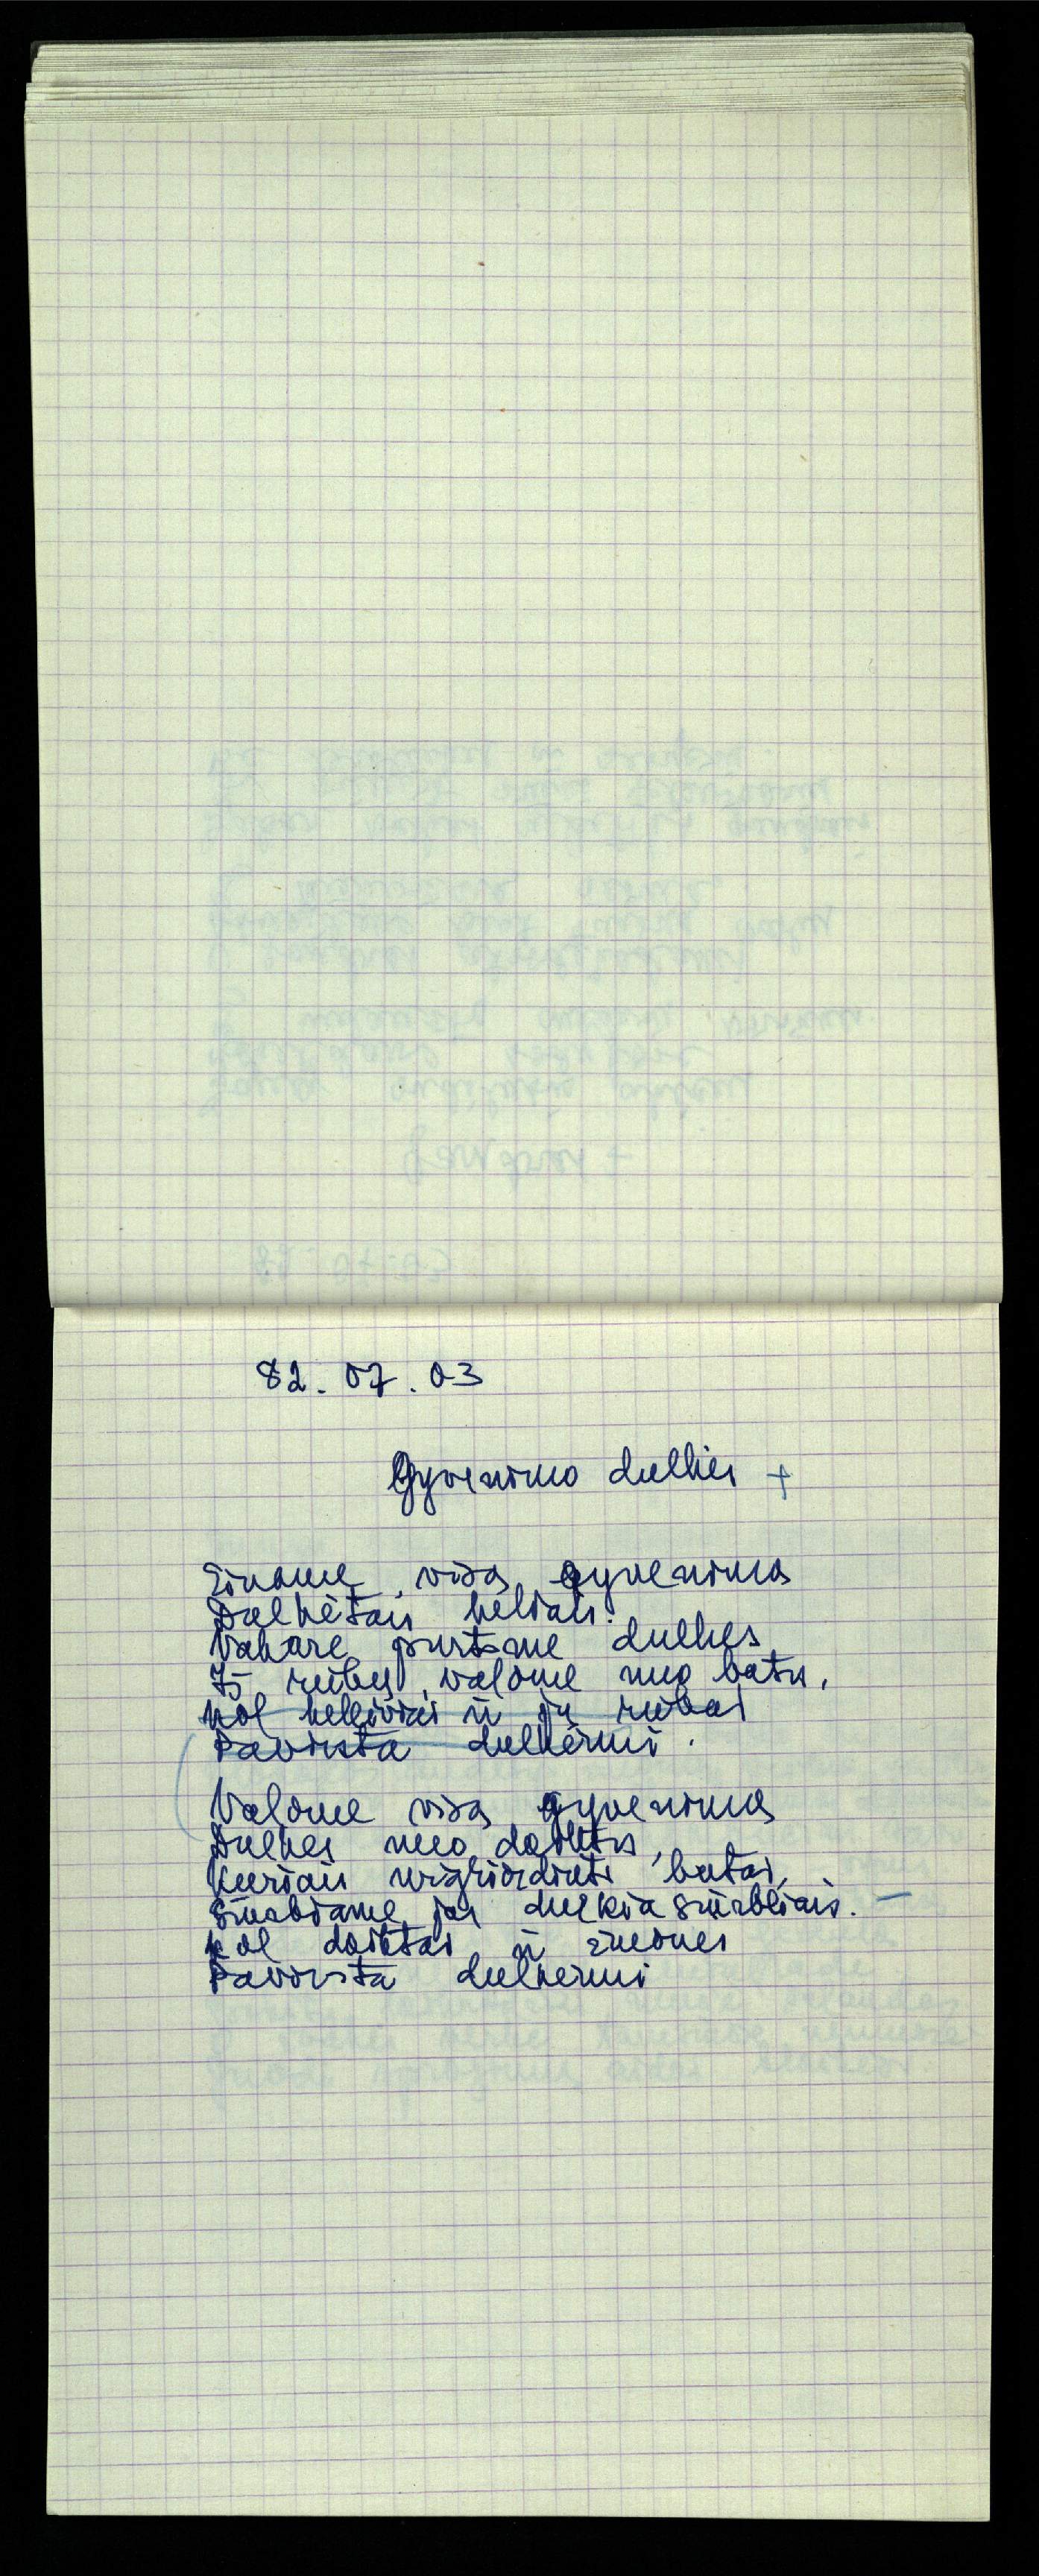 82.07.03
Gyvenimo dulkės +
Einame visą gyvenimą
Dulkėtais keliais.
Vakare purtome dulkes
Iš rūbų, valome nuo batų,
Kol keleiviai ir jų rūbai
Pavirsta dulkėmis.
Valome visą gyvenimą
Dulkes nuo daiktų,
Kuriais užgriozdinti butai,
Siurbiame jas dulkia siurbliais. —
Kol daiktai ir žmonės
Pavirsta dulkėmis